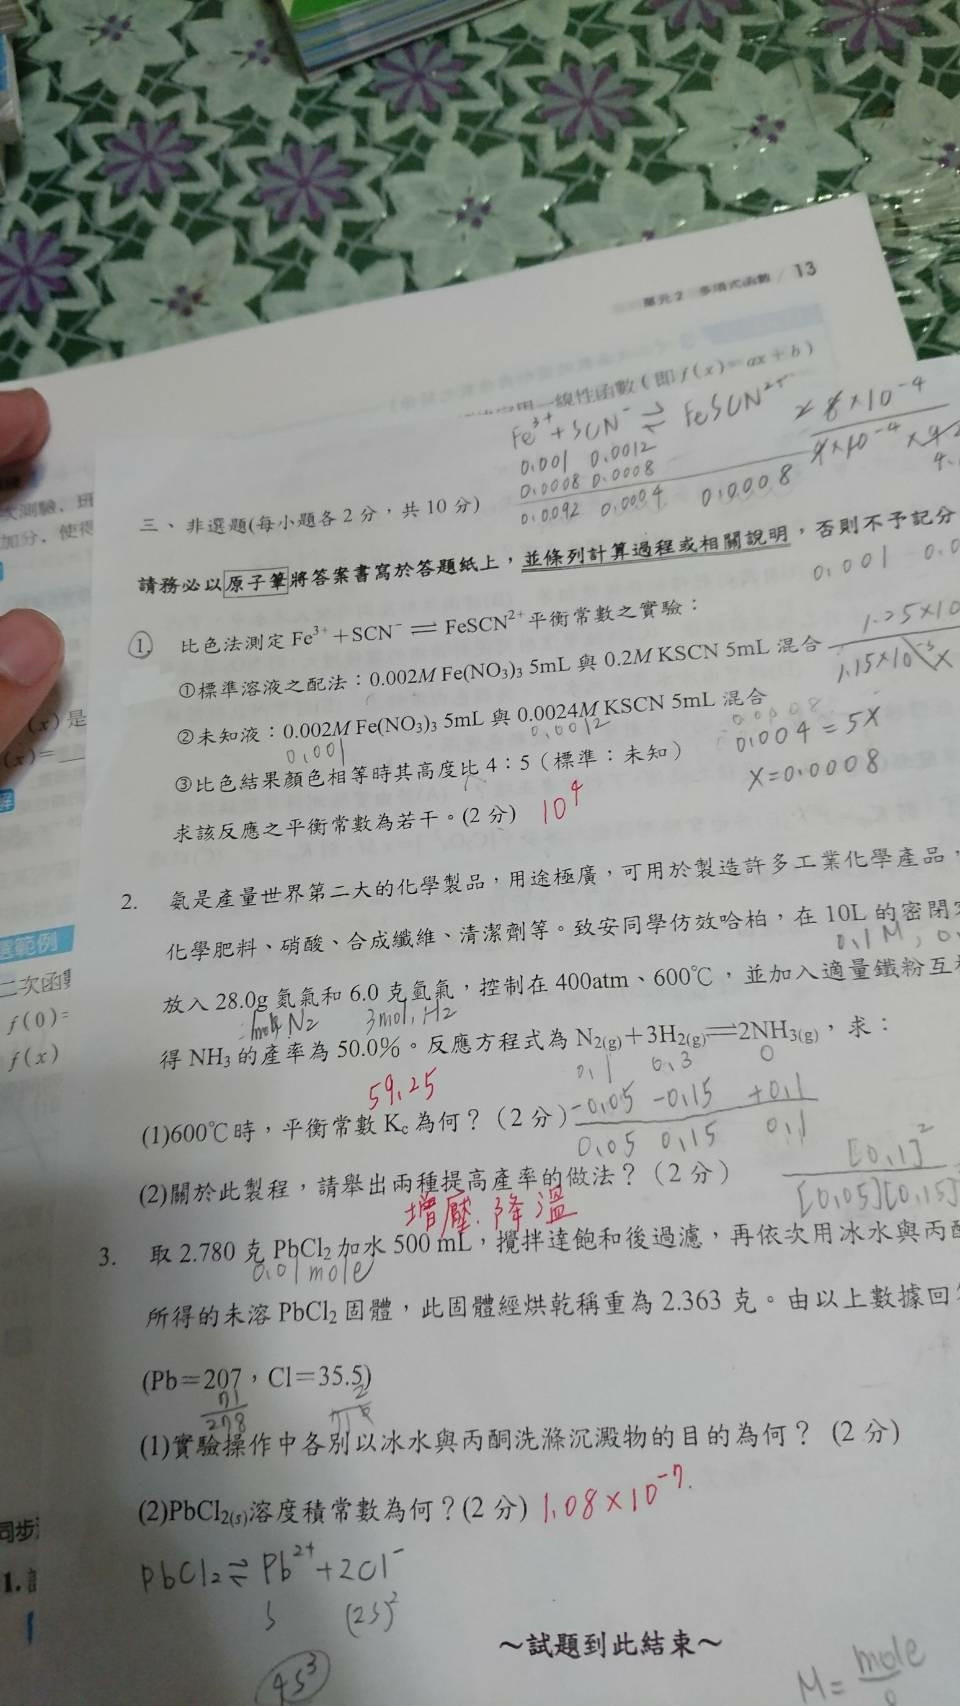 單元2 多項式函數 / 13
一線性函數(即 f(x)=ax+b)
Fe³⁺+SCN⁻ ⇌ FeSCN²⁺
0.001 0.0012
0.0008 0.0008
0.0092 0.0004 0.0008
三、非選題(每小題各 2 分,共 10 分)
請務必以原子筆將答案書寫於答題紙上,並條列計算過程或相關說明,否則不予記分
0.001
1. 比色法測定 Fe³⁺+SCN⁻ ⇌ FeSCN²⁺平衡常數之實驗:
①標準溶液之配法:0.002M Fe(NO₃)₃ 5mL 與 0.2M KSCN 5mL 混合
②未知液:0.002M Fe(NO₃)₃ 5mL 與 0.0024M KSCN 5mL 混合
0.001 0.0012
0.004=5X
X=0.0008
③比色結果顏色相等時其高度比 4:5(標準:未知)
求該反應之平衡常數為若干。(2 分) 10⁴
2. 氨是產量世界第二大的化學製品,用途極廣,可用於製造許多工業化學產品,
化學肥料、硝酸、合成纖維、清潔劑等。致安同學仿效哈柏,在 10L 的密閉
0.1M,
放入 28.0g 氮氣和 6.0 克氫氣,控制在 400atm、600℃,並加入適量鐵粉互
N₂ 3mol, H₂
得 NH₃ 的產率為 50.0%。反應方程式為 N₂(g)+3H₂(g)⇌2NH₃(g),求:
0.1 0.3 0
59.25 -0.05 -0.15 +0.1
(1)600℃時,平衡常數 Kc 為何?(2 分)
0.05 0.15 0.1
[0.1]²
[0.05][0.15]
(2)關於此製程,請舉出兩種提高產率的做法?(2 分)
增壓.降溫
3. 取 2.780 克 PbCl₂ 加水 500 mL,攪拌達飽和後過濾,再依次用冰水與丙酮
0.01 mole
所得的未溶 PbCl₂ 固體,此固體經烘乾稱重為 2.363 克。由以上數據回
(Pb=207,Cl=35.5)
71 2
278
(1)實驗操作中各別以冰水與丙酮洗滌沉澱物的目的為何? (2 分)
(2)PbCl₂(s)溶度積常數為何?(2 分) 1.08×10⁻⁷.
PbCl₂ ⇌ Pb²⁺+2Cl⁻
S (2S)²
4S³
~試題到此結束~
M= mole
範例
二次函
f(0)=
f(x)